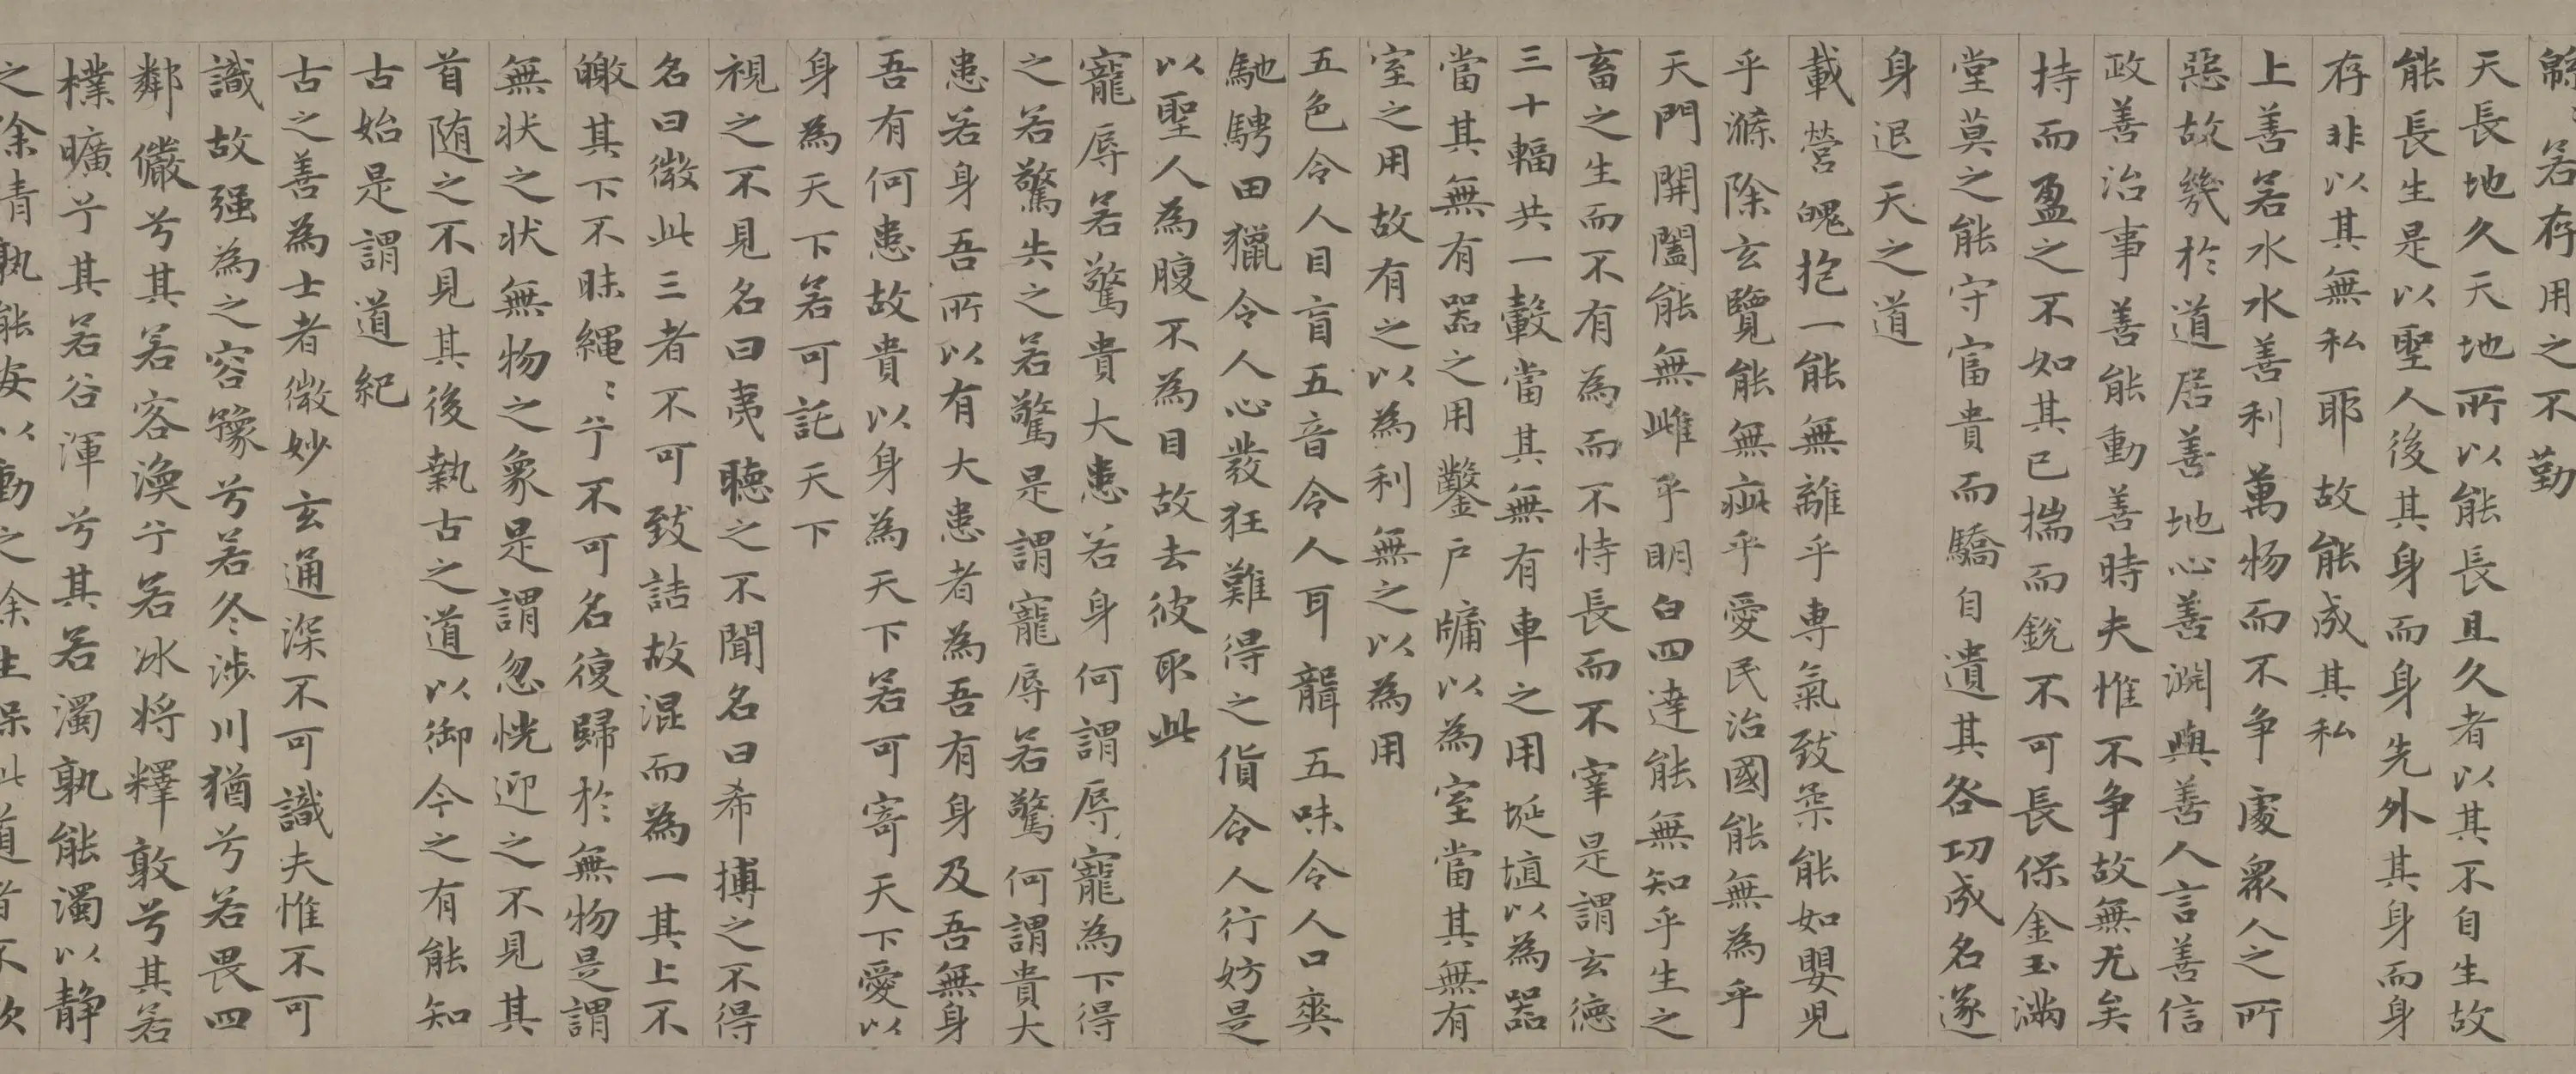 緜緜若存用之不勤
天長地久天地所以能長且久者以其不自生故
能長生是以聖人後其身而身先外其身而身
存非以其無私耶故能成其私
上善若水水善利萬物而不争處衆人之所
惡故幾於道居善地心善淵與善人言善信
政善治事善能動善時夫惟不争故無尤矣
持而盈之不如其已揣而銳不可長保金玉滿
堂莫之能守富貴而驕自遺其咎功成名遂
身退天之道
載營魄抱一能無離乎専氣致柔能如嬰児
乎滌除玄覽能無疵乎愛民治國能無為乎
天門開闔能無雌乎明白四達能無知乎生之
畜之生而不有為而不恃長而不宰是謂玄德
三十輻共一轂當其無有車之用埏埴以為器
當其無有器之用鑿戶牖以為室當其無有
室之用故有之以為利無之以為用
五色令人目盲五音令人耳聾五味令人口爽
馳騁田獵令人心發狂難得之貨令人行妨是
以聖人為腹不為目故去彼取此
寵辱若驚貴大患若身何謂辱寵為下得
之若驚失之若驚是謂寵辱若驚何謂貴大
患若身吾所以有大患者為吾有身及吾無身
吾有何患故貴以身為天下若可寄天下愛以
身為天下若可託天下
視之不見名曰夷聽之不聞名曰希搏之不得
名曰微此三者不可致詰故混而為一其上不
皦其下不昧繩〻兮不可名復歸於無物是謂
無状之状無物之象是謂忽恍迎之不見其
首随之不見其後執古之道以御今之有能知
古始是謂道紀
古之善為士者微妙玄通深不可識夫惟不可
識故强為之容豫兮若冬涉川猶兮若畏四
鄰儼兮其若容渙兮若冰将釋敦兮其若
樸曠兮其若谷渾兮其若濁孰能濁以静
之徐清孰能安以動之徐生保此道者不欲